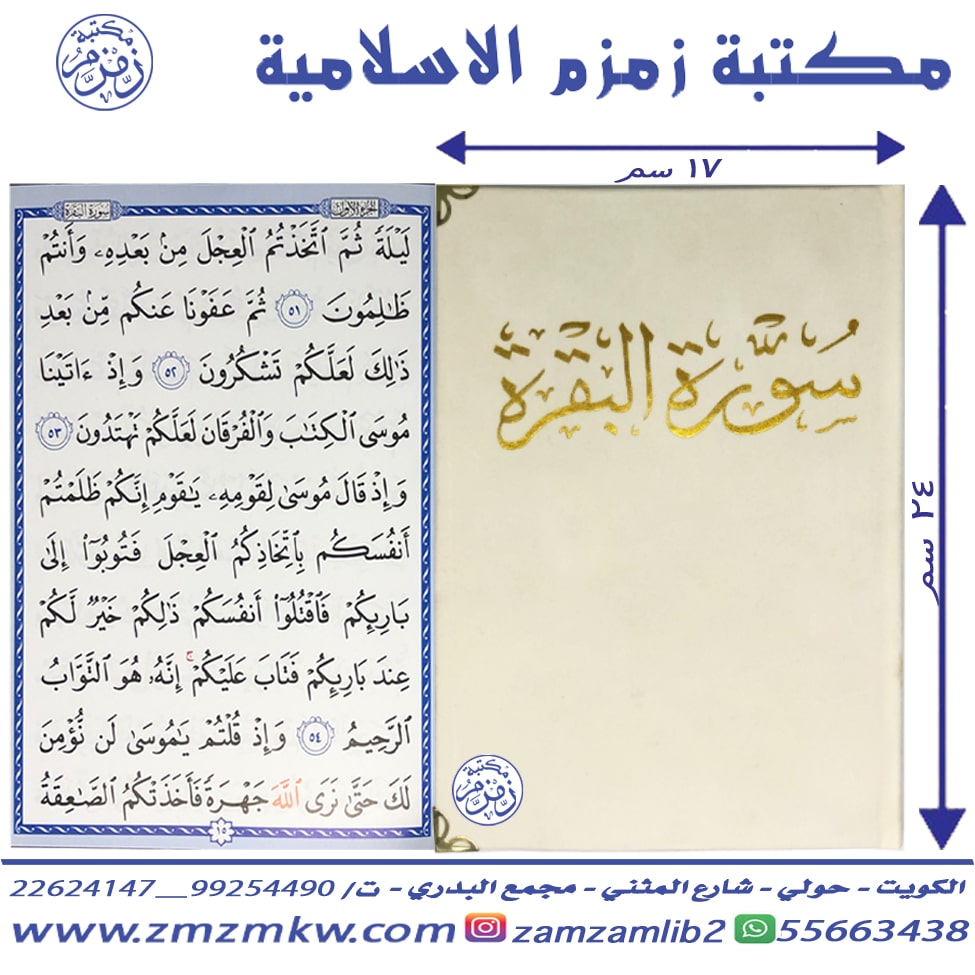 مكتبة زمزم
مكتبة زمزم الاسلامية
١٧ سم
سورة البقرة
الجزء الأول
لَيْلَةً ثُمَّ ٱتَّخَذْتُمُ ٱلْعِجْلَ مِنۢ بَعْدِهِۦ وَأَنتُمْ
ظَٰلِمُونَ ٥١ ثُمَّ عَفَوْنَا عَنكُم مِّنۢ بَعْدِ
ذَٰلِكَ لَعَلَّكُمْ تَشْكُرُونَ ٥٢ وَإِذْ ءَاتَيْنَا
مُوسَى ٱلْكِتَٰبَ وَٱلْفُرْقَانَ لَعَلَّكُمْ تَهْتَدُونَ ٥٣
وَإِذْ قَالَ مُوسَىٰ لِقَوْمِهِۦ يَٰقَوْمِ إِنَّكُمْ ظَلَمْتُمْ
أَنفُسَكُم بِٱتِّخَاذِكُمُ ٱلْعِجْلَ فَتُوبُوٓا۟ إِلَىٰ
بَارِئِكُمْ فَٱقْتُلُوٓا۟ أَنفُسَكُمْ ذَٰلِكُمْ خَيْرٌ لَّكُمْ
عِندَ بَارِئِكُمْ فَتَابَ عَلَيْكُمْ ۚ إِنَّهُۥ هُوَ ٱلتَّوَّابُ
ٱلرَّحِيمُ ٥٤ وَإِذْ قُلْتُمْ يَٰمُوسَىٰ لَن نُّؤْمِنَ
لَكَ حَتَّىٰ نَرَى ٱللَّهَ جَهْرَةً فَأَخَذَتْكُمُ ٱلصَّٰعِقَةُ
١٥
سُورَة البَقَرَة
٢٤ سم
مكتبة زمزم
الكويت - حولي - شارع المثني - مجمع البدري - ت/ 99254490__22624147
www.zmzmkw.com zamzamlib2 55663438